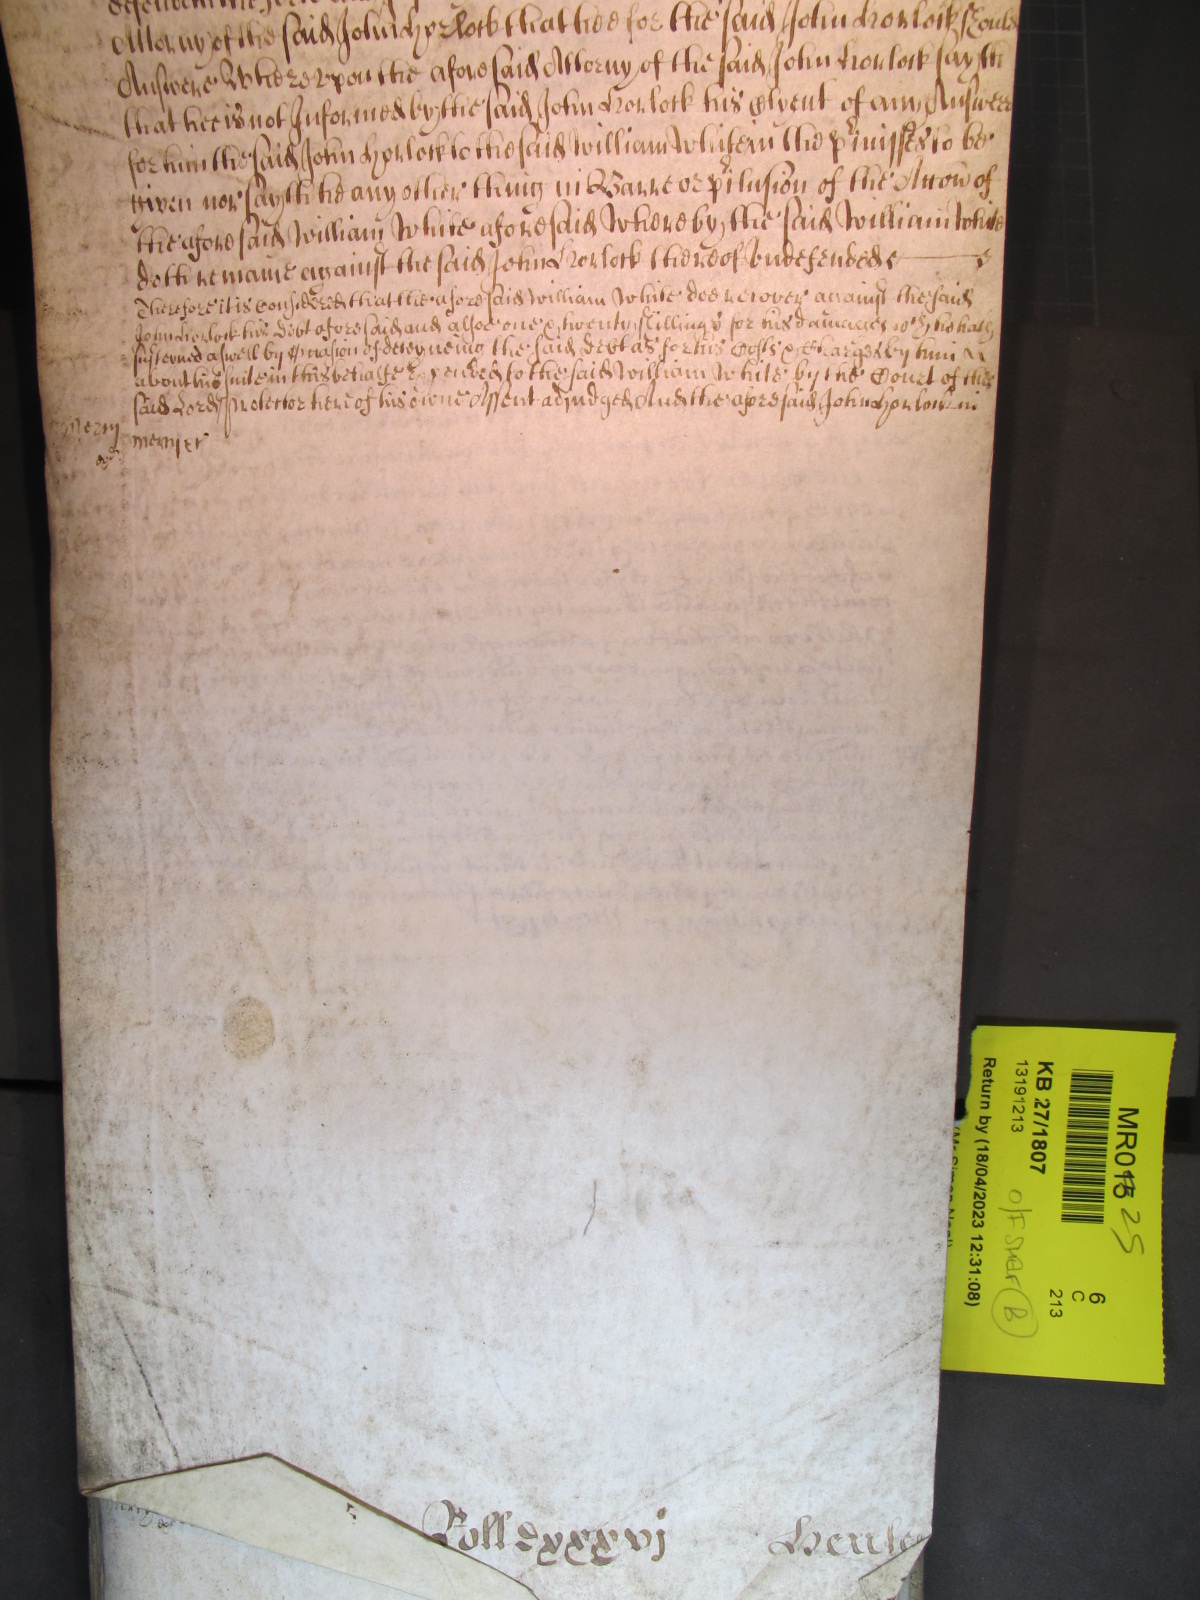 Attorny of the said John Horlock that hee for the said John Horlock should
Answere Whereupon the aforesaid Attorny of the said John Horlock sayth
that hee is not Informed by the said John Horlock his Clyent of any Answere
for him the said John Horlock to the said William White in the p'misses to be
given nor sayth he any other thing in Barre or p'clusion of the Accon of
the aforesaid William White aforesaid Whereby the said William White
doth remaine against the said John Horlock thereof undefended
Therefore it is Considered that the aforesaid William White doe recover against the said
John Horlock his debt aforesaid and alsoe one & twenty shillings for his damages wch he hath
susteyned aswell by occasion of deteyneing the said debt as for his Costs & Charges by him
about his suite in this behalfe expended to the said William White by the Court of the
said Lord Protector here of his owne Assent adjudged And the aforesaid John Horlock in
mercy &c
Roll dxxxvj
MR013 25
6
C
213
KB 27/1807
13191213
O/F Shelf B
Return by (18/04/2023 12:31:08)